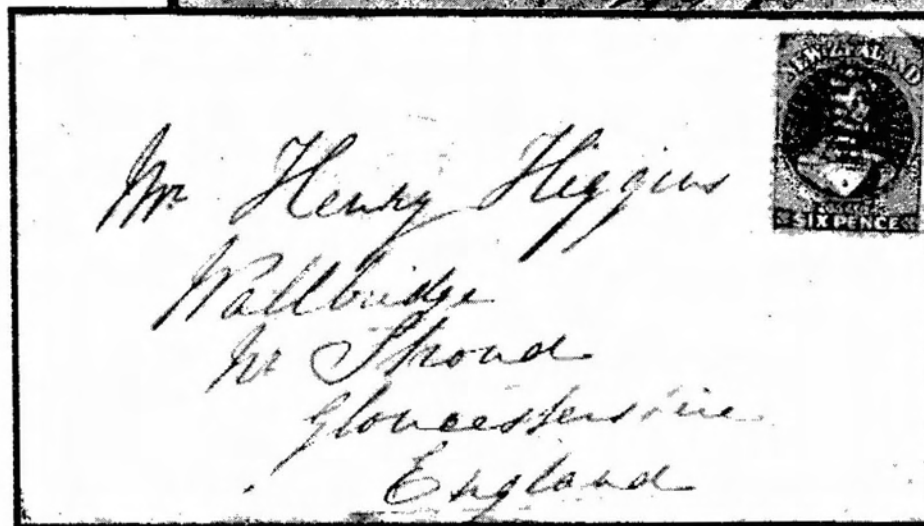 NEW ZEALAND
SIX PENCE
Mr Henry Higgins
Wallbridge
Nr Stroud
Gloucestershire
England